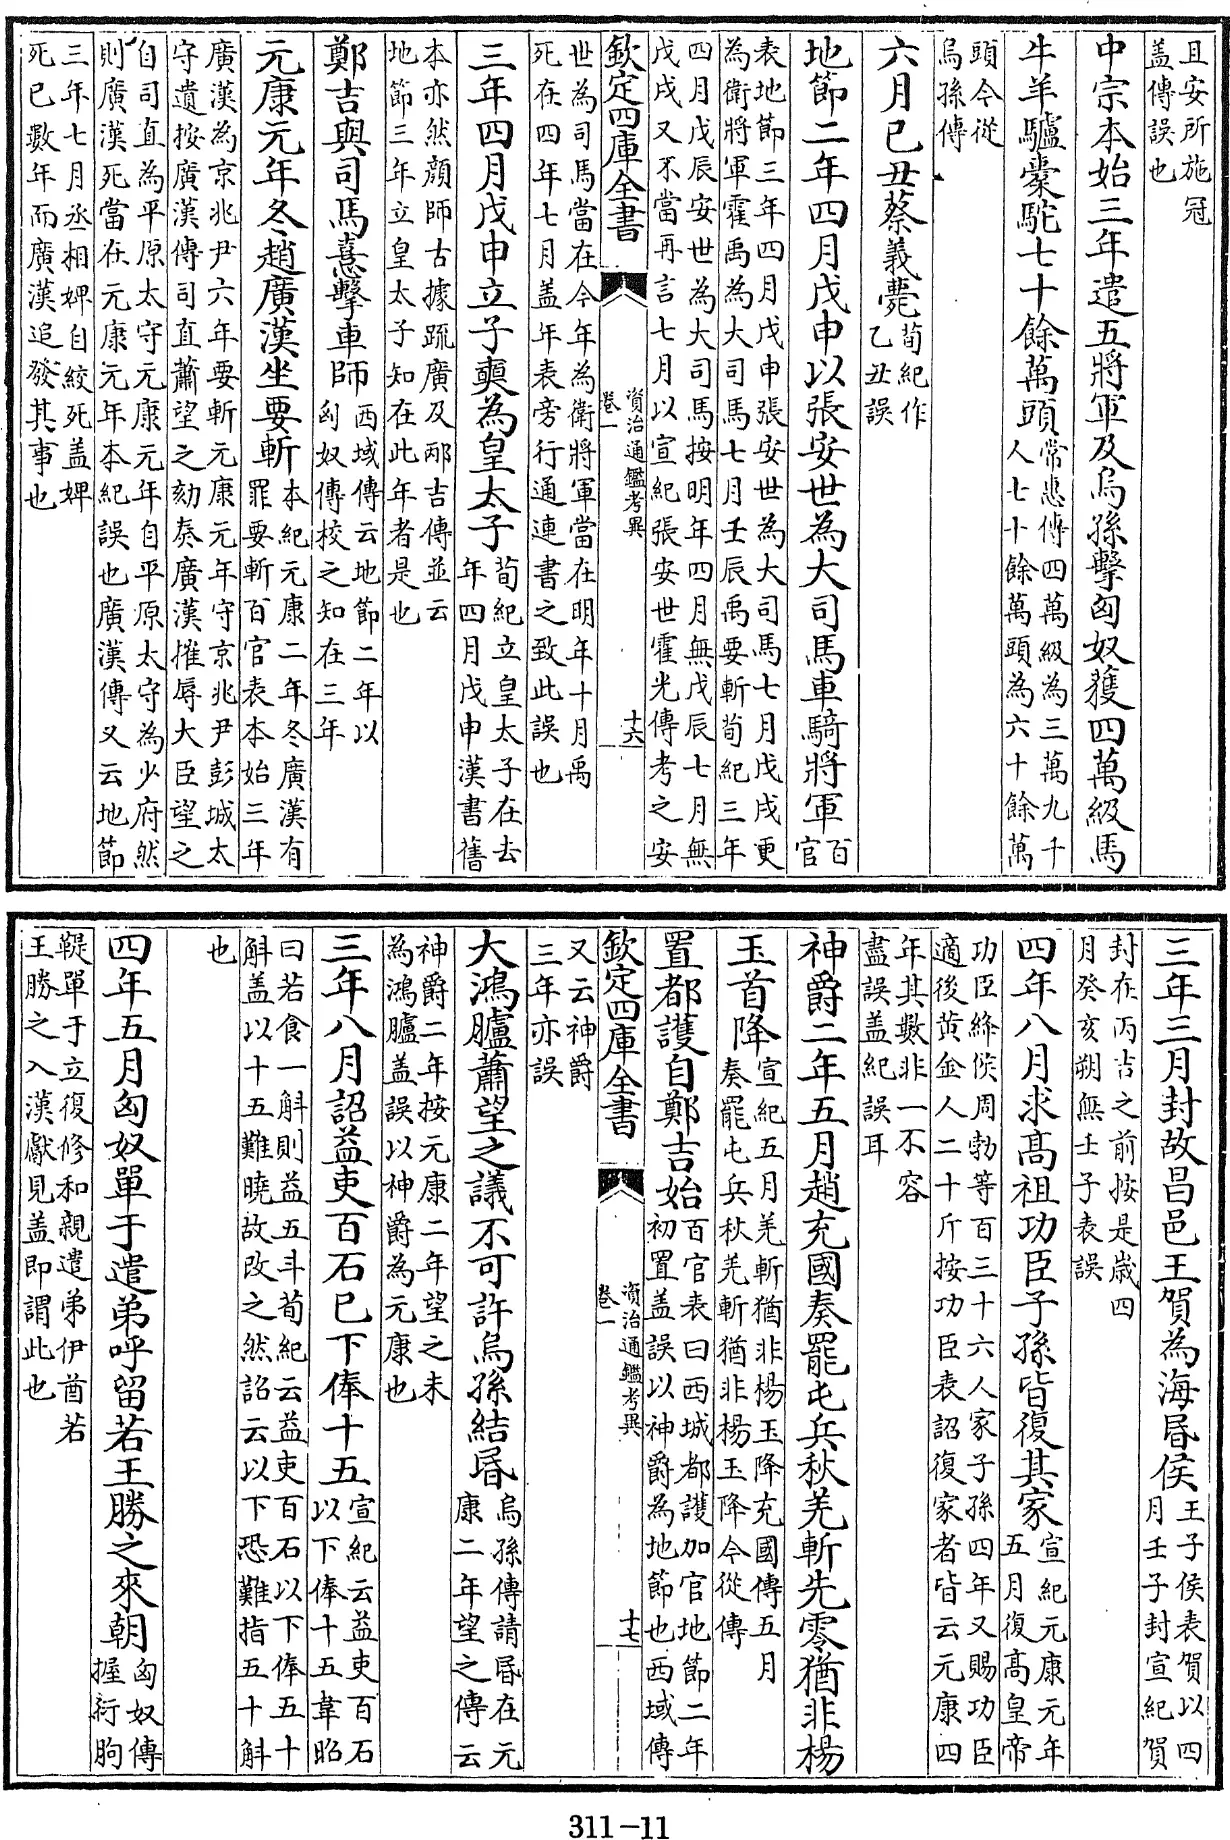 且安所施冠
盖傳誤也
中宗本始三年遣五將軍及烏孫擊匈奴獲四萬級馬
牛羊驢橐駝七十餘萬頭
常惠傳四萬級為三萬九千
人七十餘萬頭為六十餘萬
頭今從
烏孫傳
六月己丑蔡義薨
荀紀作
乙丑誤
地節二年四月戊申以張安世為大司馬車騎將軍
百
官
表地節三年四月戊申張安世為大司馬七月戊戌更
為衛將軍霍禹為大司馬七月壬辰禹要斬荀紀三年
四月戊辰安世為大司馬按明年四月無戊辰七月無
戊戌又不當再言七月以宣紀張安世霍光傳考之安
欽定四庫全書
資治通鑑考異
卷一
十六
世為司馬當在今年為衛將軍當在明年十月禹
死在四年七月盖年表旁行通連書之致此誤也
三年四月戊申立子奭為皇太子
荀紀立皇太子在去
年四月戊申漢書舊
本亦然顔師古據疏廣及邴吉傳並云
地節三年立皇太子知在此年者是也
鄭吉與司馬憙擊車師
西域傳云地節二年以
匈奴傳校之知在三年
元康元年冬趙廣漢坐要斬
本紀元康二年冬廣漢有
罪要斬百官表本始三年
廣漢為京兆尹六年要斬元康元年守京兆尹彭城太
守遺按廣漢傳司直蕭望之劾奏廣漢摧辱大臣望之
自司直為平原太守元康元年自平原太守為少府然
則廣漢死當在元康元年本紀誤也廣漢傳又云地節
三年七月丞相婢自絞死盖婢
死已數年而廣漢追發其事也
三年三月封故昌邑王賀為海昏侯
王子侯表賀以四
月壬子封宣紀賀
封在丙吉之前按是歲四
月癸亥朔無壬子表誤
四年八月求髙祖功臣子孫皆復其家
宣紀元康元年
五月復髙皇帝
功臣絳侯周勃等百三十六人家子孫四年又賜功臣
適後黄金人二十斤按功臣表詔復家者皆云元康四
年其數非一不容
盡誤盖紀誤耳
神爵二年五月趙充國奏罷屯兵秋羌斬先零猶非楊
玉首降
宣紀五月羌斬猶非楊玉降充國傳五月
奏罷屯兵秋羌斬猶非楊玉降今從傳
置都護自鄭吉始
百官表曰西城都護加官地節二年
初置盖誤以神爵為地節也西域傳
欽定四庫全書
資治通鑑考異
卷一
十七
又云神爵
三年亦誤
大鴻臚蕭望之議不可許烏孫結昏
烏孫傳請昏在元
康二年望之傳云
神爵二年按元康二年望之未
為鴻臚盖誤以神爵為元康也
三年八月詔益吏百石已下俸十五
宣紀云益吏百石
以下俸十五韋昭
曰若食一斛則益五斗荀紀云益吏百石以下俸五十
斛盖以十五難曉故改之然詔云以下恐難指五十斛
也
四年五月匈奴單于遣弟呼留若王勝之來朝
匈奴傳
握衍朐
鞮單于立復修和親遣弟伊酋若
王勝之入漢獻見盖即謂此也
311-11